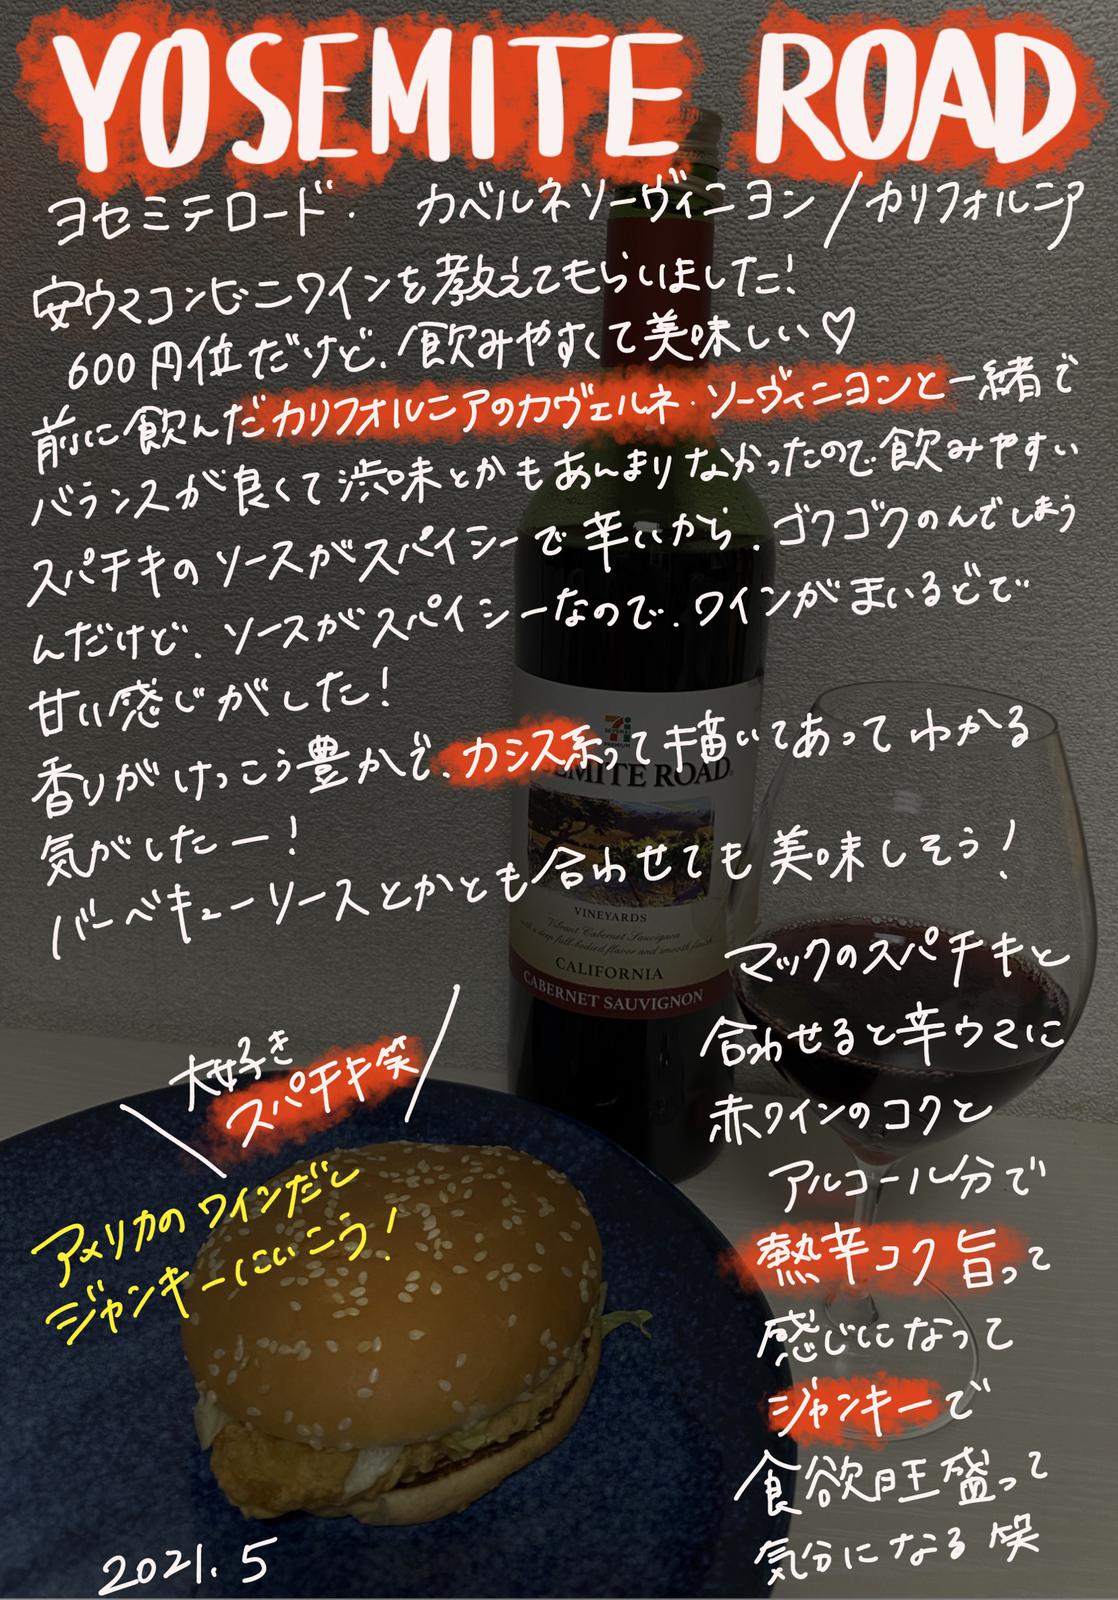 YOSEMITE ROAD
ヨセミテロード・ カベルネソーヴィニヨン/カリフォルニア
安ウマコンビニワインを教えてもらいました!
600円位だけど、飲みやすくて美味しい♡
前に飲んだカリフォルニアのカヴェルネ・ソーヴィニヨンと一緒で
バランスが良くて渋味とかもあんまりなかったので飲みやすい
スパチキのソースがスパイシーで辛いから、ゴクゴクのんでしまう
んだけど、ソースがスパイシーなので、ワインがまいるどで
甘い感じがした!
香りがけっこう豊かで、カシス系って描いてあってわかる
気がしたー!
バーベキューソースとかとも合わせても美味しそう!
マックのスパチキと
合わせると辛ウマに
赤ワインのコクと
アルコール分で
熱辛コク旨って
感じになって
ジャンキーで
食欲旺盛って
気分になる 笑
大好き
スパチキ笑
アメリカのワインだし
ジャンキーにいこう!
2021.5
7i
PREMIUM
YOSEMITE ROAD
VINEYARDS
Vibrant Cabernet Sauvignon
with a deep full-bodied flavor and smooth finish
CALIFORNIA
CABERNET SAUVIGNON